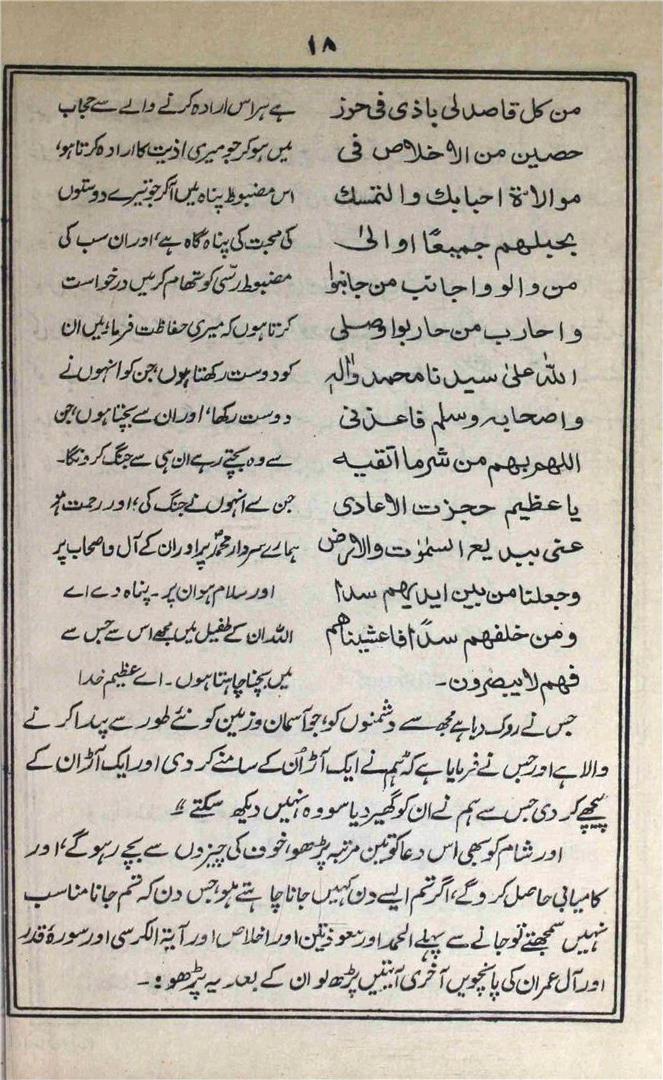 ۱۸
من كل قاصد لى باذى فى حوز
حصين من الاخلاص فى
موالاة احبابك والتمسك
بحبلهم جميعًا اوالى
من والو واجانب من جانبوا
واحارب من حاربوا وصلى
الله على سيدنا محمد واٰلهٖ
واصحابه وسلم فاعذنى
اللهم بهم من شر ما اتقيه
يا عظيم حجزت الاعادى
عنى ببديع السمٰوٰت والارض
وجعلنا من بين ايديهم سدا
ومن خلفهم سدًا فاغشيناهم
فهم لا يبصرون۔
ہے ہر اس ارادہ کرنے والے سے حجاب
میں ہو کر جو میری اذیت کا ارادہ کرتا ہو،
اس مضبوط پناہ میں آکر جو تیرے دوستوں
کی محبت کی پناہ گاہ ہے، اور ان سب کی
مضبوط رسّی کو تھام کر میں درخواست
کرتا ہوں کہ میری حفاظت فرما، میں ان
کو دوست رکھتا ہوں، جن کو انہوں نے
دوست رکھا، اور ان سے بچتا ہوں، جن
سے وہ بچتے رہے ان ہی سے جنگ کرونگا۔
جن سے انہوں نے جنگ کی، اور رحمت ہو
ہمارے سردار محمدؐ پر اور ان کے آل و اصحاب پر
اور سلام ہو ان پر۔ پناہ دے اے
اللہ ان کے طفیل میں مجھے اس سے جس سے
میں بچنا چاہتا ہوں۔ اے عظیم خدا
جس نے روک دیا ہے مجھ سے دشمنوں کو، جو آسمان و زمین کو نئے طور سے پیدا کرنے
والا ہے اور جس نے فرمایا ہے کہ ہم نے ایک آڑ اُن کے سامنے کر دی اور ایک آڑ ان کے
پیچھے کر دی جس سے ہم نے ان کو گھیر دیا سو وہ نہیں دیکھ سکتے"
اور شام کو بھی اس دعا کو تین مرتبہ پڑھو، خوف کی چیزوں سے بچے رہو گے، اور
کامیابی حاصل کرو گے، اگر تم ایسے دن کہیں جانا چاہتے ہو، جس دن کہ تم جانا مناسب
نہیں سمجھتے تو جانے سے پہلے الحمد اور معوذتین اور اخلاص اور آیۃ الکرسی اور سورۂ قدر
اور آل عمران کی پانچویں آخری آیتیں پڑھ لو ان کے بعد یہ پڑھو :۔